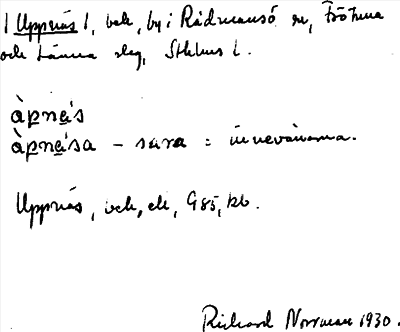 | Uppnäs |, beb., by i Rådmansö sn, Frötuna
och Länna slg, Sthlms l.
àpnás
àpnása – sara = innevånarna.
Uppnäs, beb, ek, G85, kb.
Richard Norrman 1930.